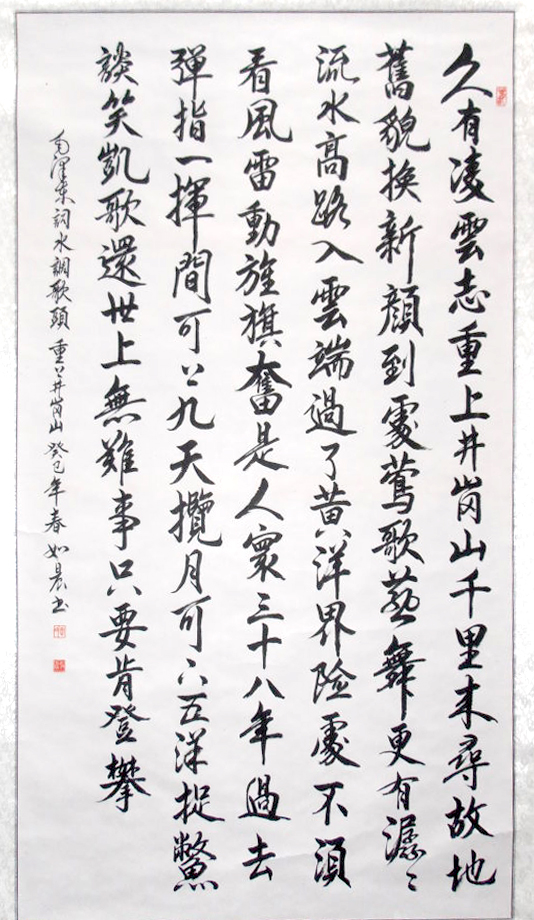 久有凌雲志重上井岗山千里来尋故地
舊貌换新顔到處鶯歌燕舞更有潺〻
流水高路入雲端過了黄洋界險處不須
看風雷動旌旗奮是人寰三十八年過去
彈指一揮間可上九天攬月可下五洋捉鱉
談笑凱歌還世上無難事只要肯登攀
毛澤东詞水調歌頭 重上井岗山 癸巳年春 如晨书